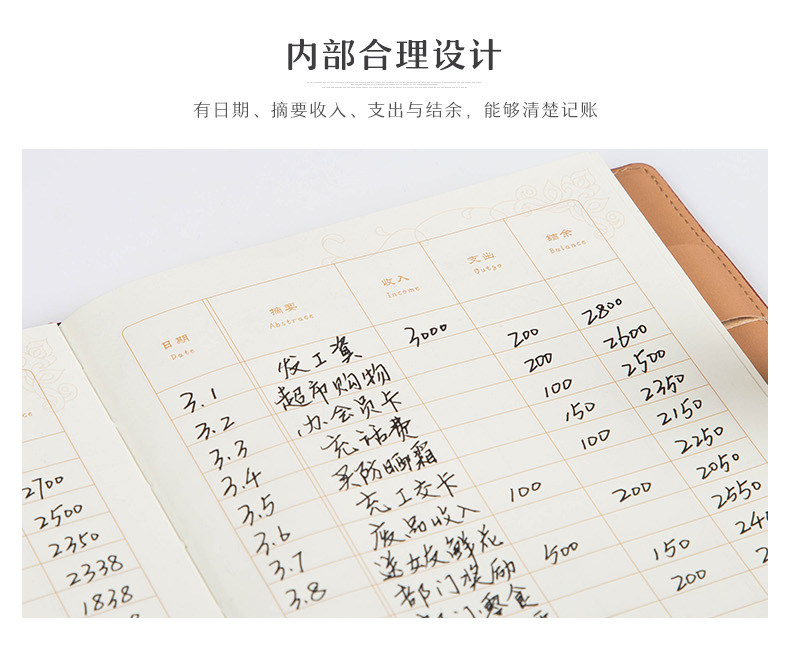 内部合理设计
有日期、摘要收入、支出与结余，能够清楚记账
日期 摘要 收入 支出 结余
Date Abstrace Income Outgo Balance
3.1 发工资 3000
3.2 超市购物 200 2800
3.3 办会员卡 200 2600
3.4 充话费 100 2500
3.5 买防晒霜 150 2350
3.6 充工交卡 100 2150
3.7 废品收入 100 2250
3.8 送女友鲜花 200 2050
部门奖励 500 2550
部门零食 150
200
2700
2500
2350
2338
1838